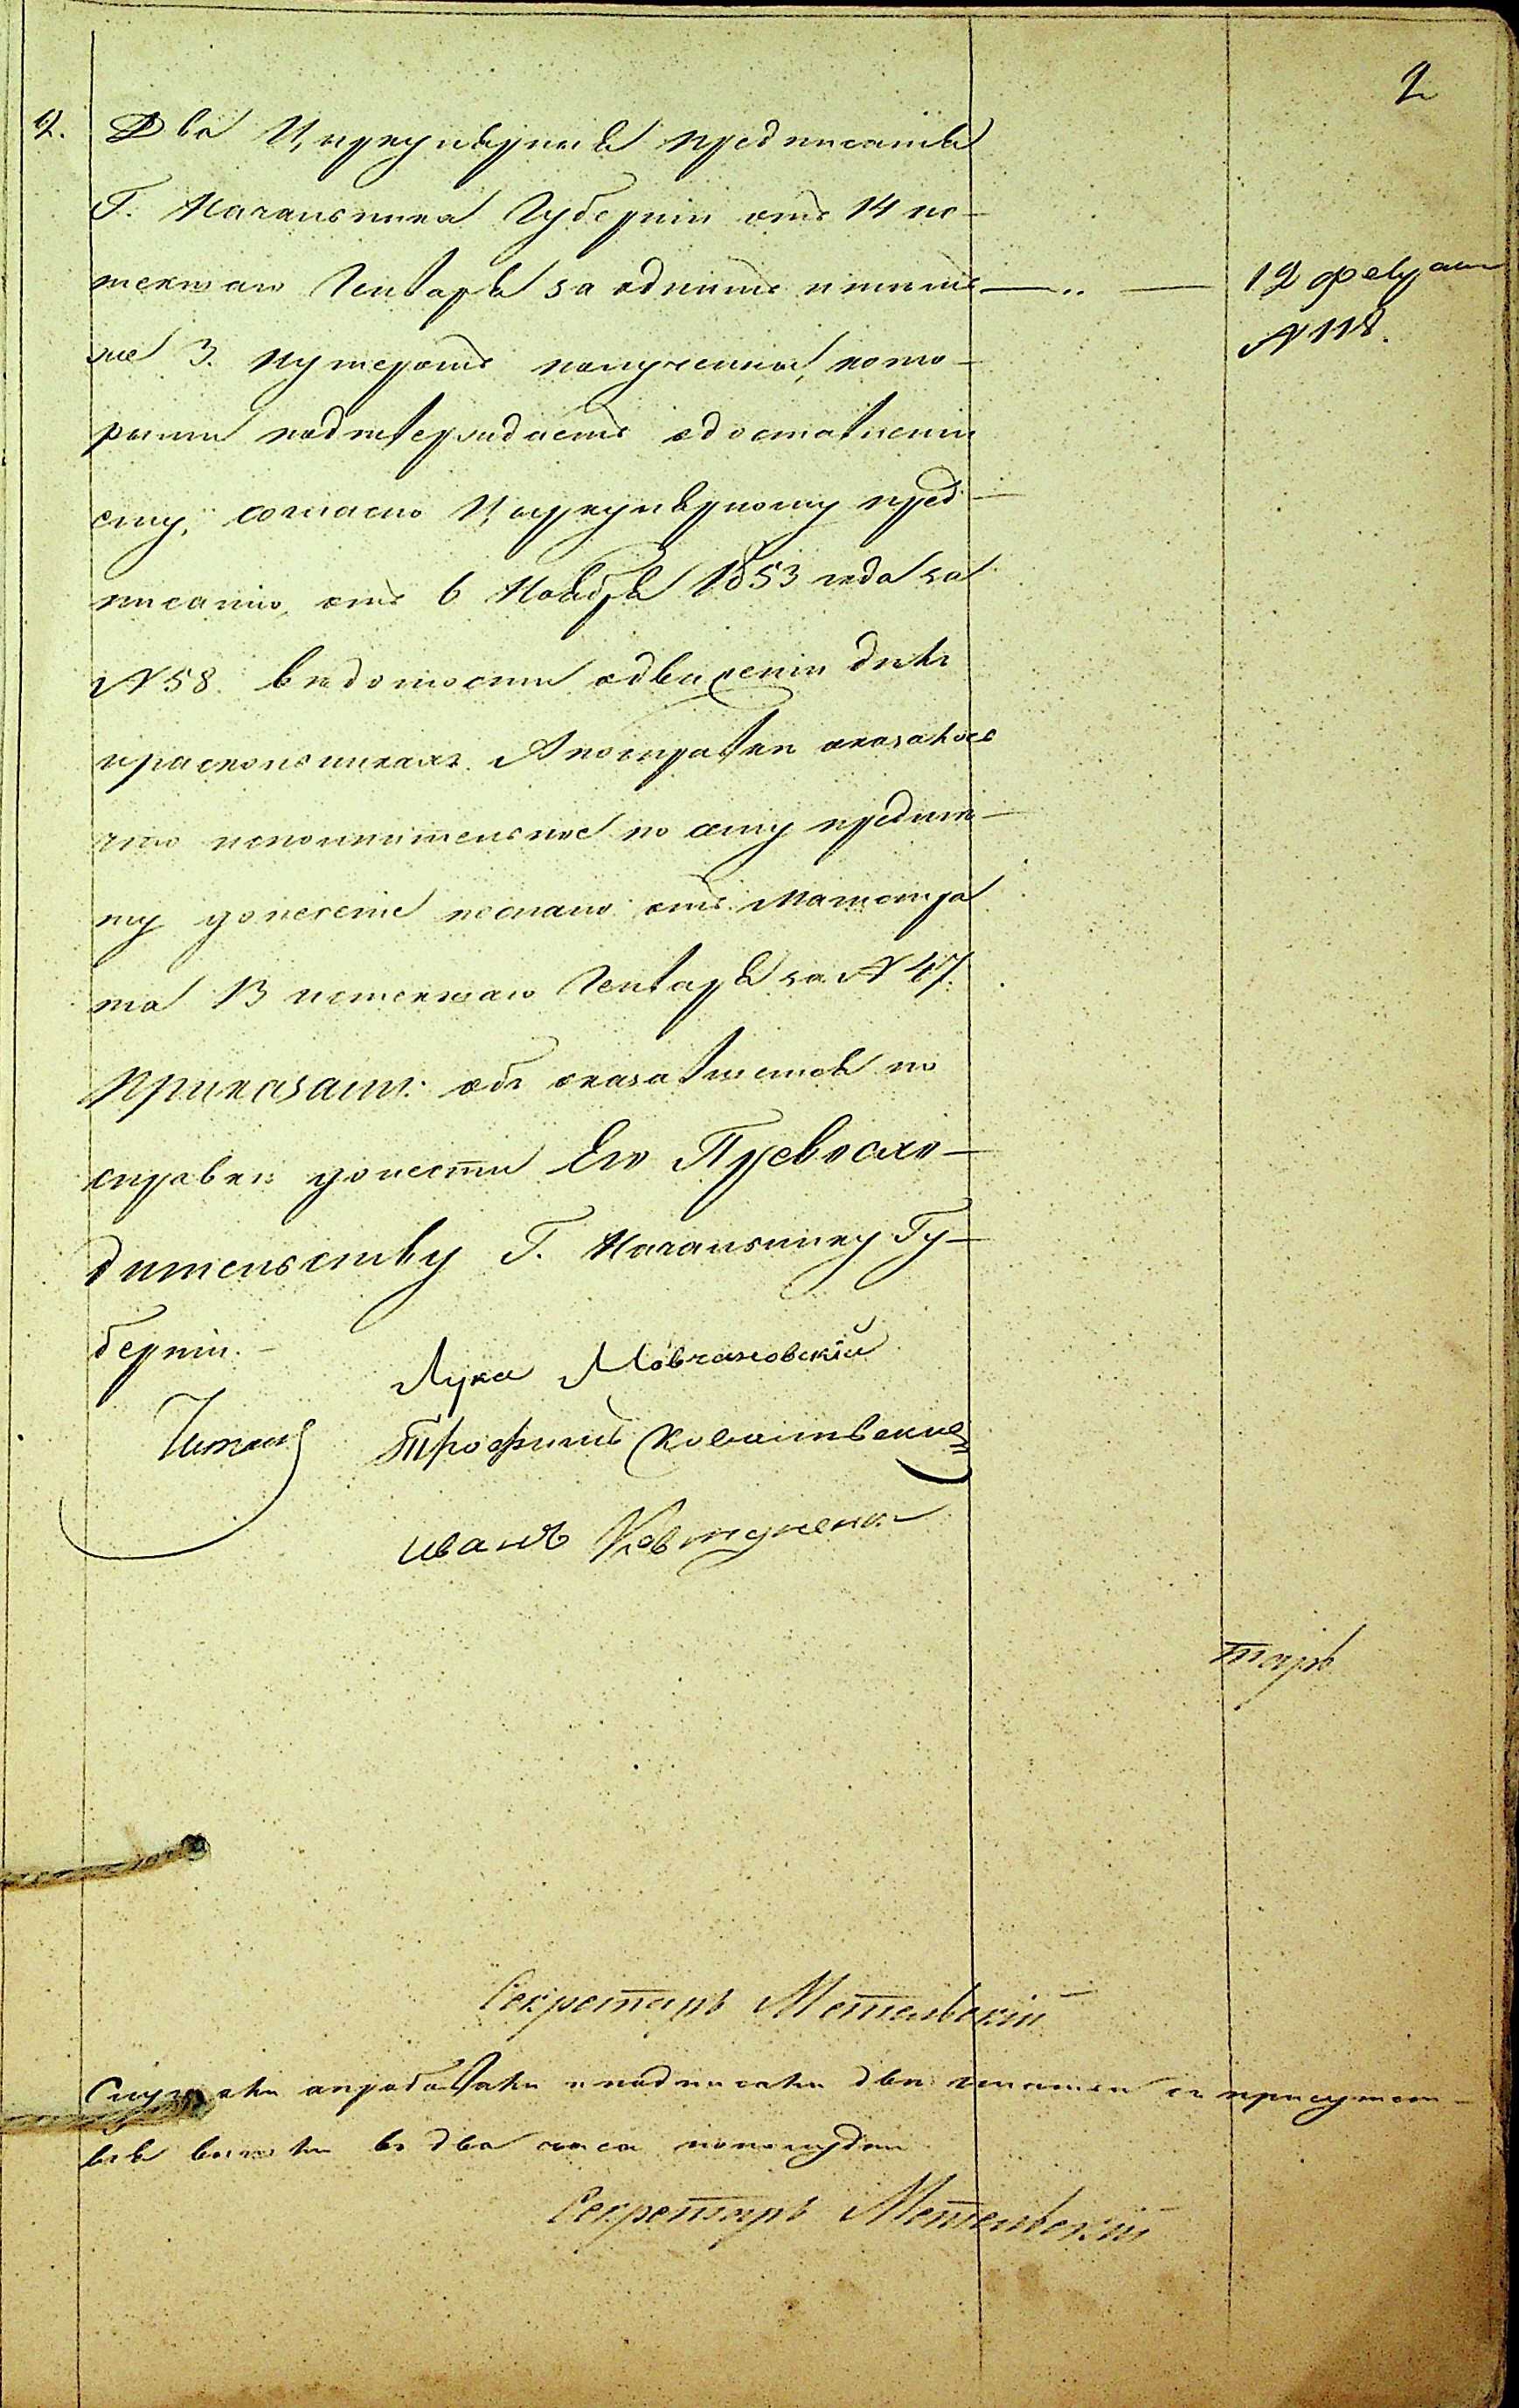 2
2. Два Циркулярныя предписанія
Г. Начальника Губерніи отъ 14 ис-
текшаго Генваря за однимъ и тѣмъ
12 февраля
же 3. нумеромъ полученныя, кото-
№ 118.
рыми подтверждаетъ о доставленіи
ему, согласно Циркулярному пред-
писанію, отъ 6 Ноября 1853 года за
№ 58. вѣдомости о движеніи дѣлъ
о раскольникахъ. А по справкѣ оказалось
что исполнительное по сему предме-
ту донесеніе послано отъ Магистра
та 13 истекшаго Генваря за № 47.
Приказали: объ оказавшемся по
справкѣ донести Его Превосхо-
дительству Г. Начальнику Гу-
берніи.
Лука Мовчановскій
Читалъ Трофимъ
иванъ Ковтуненко
тарь
Секретарь Метельскій
Слушали апробовали и подписали двѣ статьи съ присутст-
вія вышли въ два часа пополудни
Секретарь Метельскій